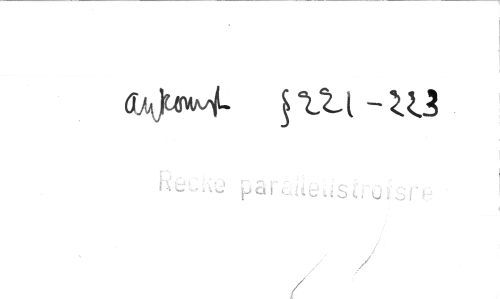 ankomst § 221-223
Recke